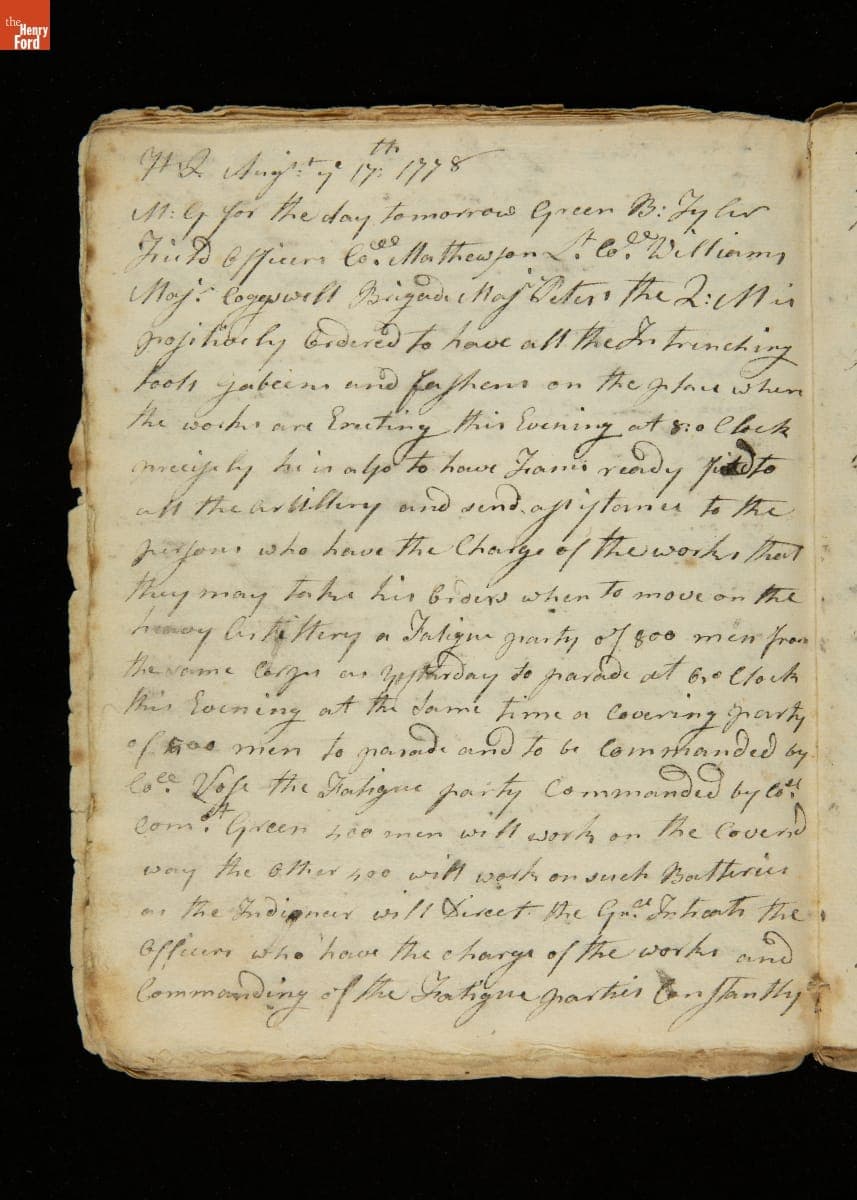 the
Henry
Ford
H Q Augst ye 17th 1778
M: G for the day tomorrow Green B: Tyler
Field Officers Coll. Mathewson Lt. Coll. Williams
Majr. Coggswell Brigade Majr Peters the Q: M is
positively Ordered to have all the Intrenching
tools gabeens and fashens on the place where
the works are Erecting this Evening at 8: o Clock
precisely he is also to have Teams ready to
all the artillery and send assistance to the
persons who have the Charge of the works that
they may take his Orders when to move on the
heavy Artillery a Fatigue party of 800 men from
the same Corps as yesterday to parade at 6 o Clock
this Evening at the Same time a Covering party
of men to parade and to be Commanded by
Coll. Vose the Fatigue party Commanded by Coll.
Comst. Green 400 men will work on the Coverd
way the Other 400 will work on such Batteries
as the Indinear will Direct the Gnel. Intreats the
Officers who have the charge of the works and
Commanding of the Fatigue parties Constantly